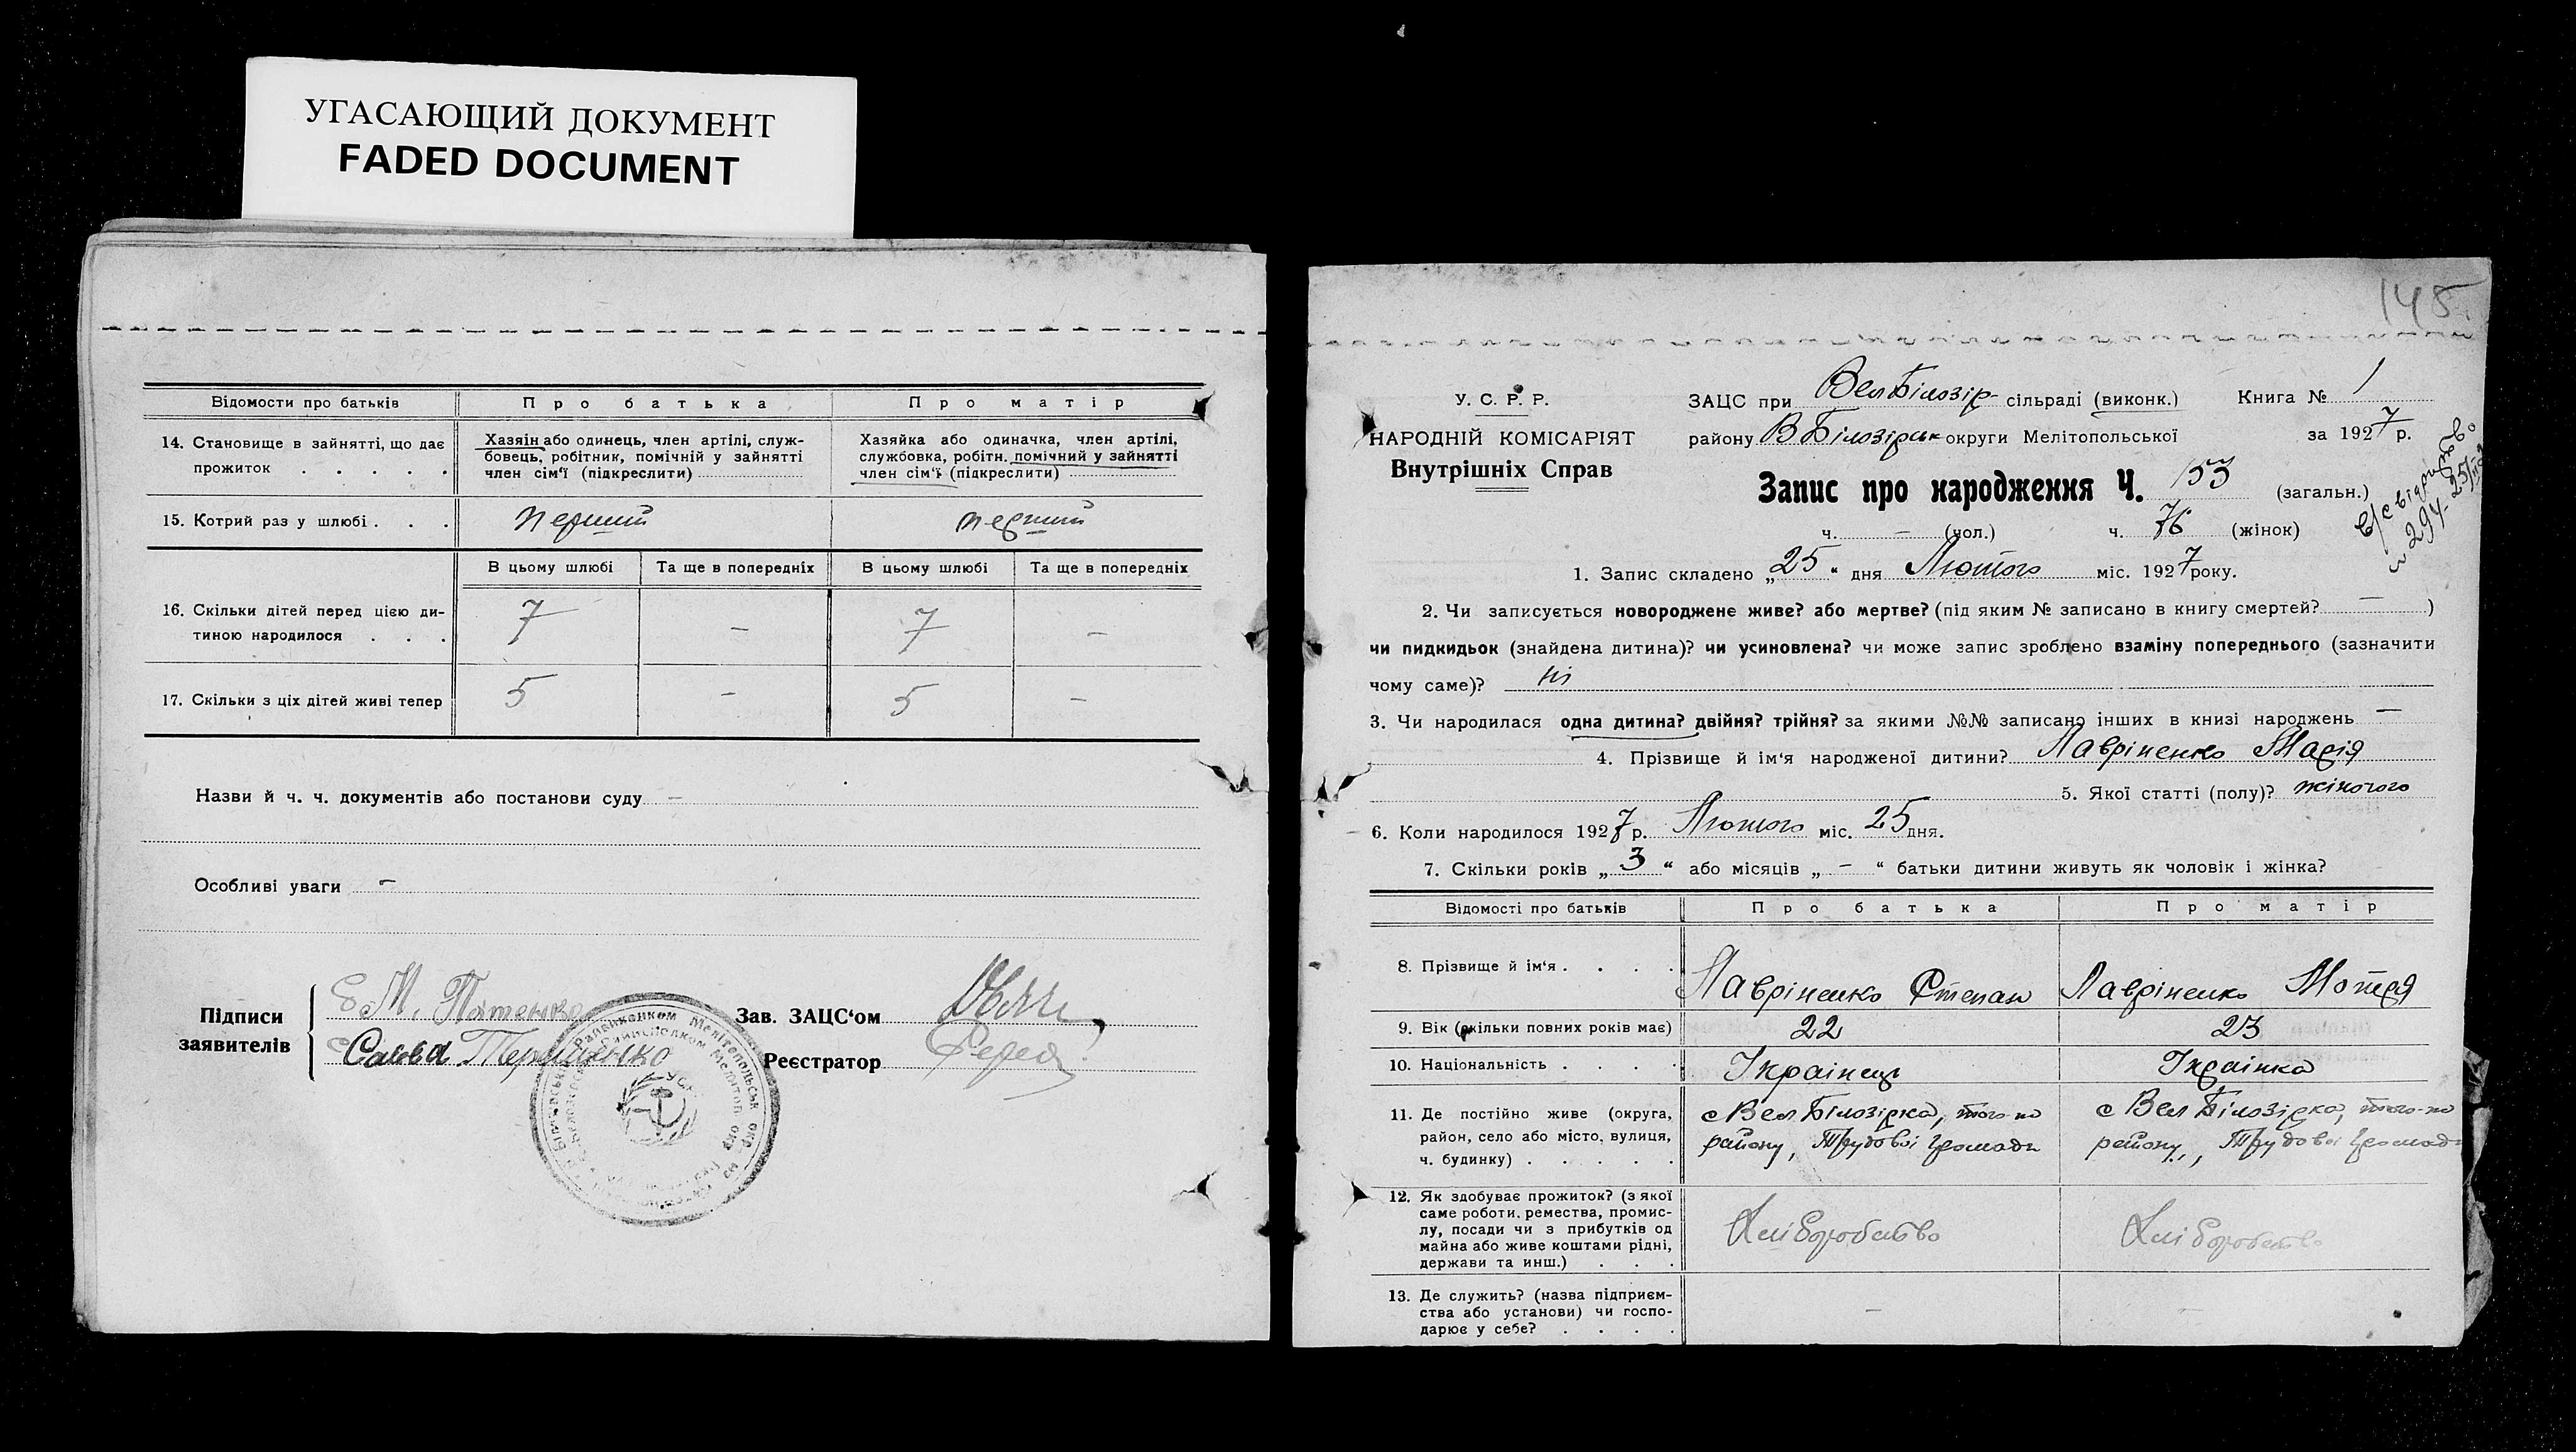 УГАСАЮЩИЙ ДОКУМЕНТ
FADED DOCUMENT
Відомости про батьків
Про батька
Про матір
14. Становище в зайнятті, що дає
прожиток . . . . .
Хазяін або одинець, член артілі, служ-
бовець, робітник, помічній у зайнятті
член сім'ї (підкреслити)
Хазяйка або одиначка, член артілі,
службовка, робітн. помічний у зайнятті
член сім'ї (підкреслити)
15. Котрий раз у шлюбі . . .
перший
перший
В цьому шлюбі
Та ще в попередніх
В цьому шлюбі
Та ще в попередніх
16. Скільки дітей перед цією ди-
тиною народилося . . .
7 – 7 –
17. Скільки з ціх дітей живі тепер
5 – 5 –
Назви й ч. ч. документів або постанови суду –
Особливі уваги –
Підписи
заявителів
Зав. ЗАЦС'ом
Савва
Реєстратор
145
У. С. Р. Р.
НАРОДНІЙ КОМІСАРІЯТ
Внутрішніх Справ
ЗАЦС при Вел Білозір- сільраді (виконк.)
Книга № 1
району В Білозірськ округи Мелітопольської
за 1927 р.
Запис про народження Ч. 153 (загальн.)
ч. – (чол.) ч. 76 (жінок)
1. Запис складено „25" дня Лютого міс. 1927 року.
2. Чи записується новороджене живе? або мертве? (під яким № записано в книгу смертей? – )
чи пидкидьок (знайдена дитина)? чи усиновлена? чи може запис зроблено взаміну попереднього (зазначити
чому саме)? ні
3. Чи народилася одна дитина? двійня? трійня? за якими №№ записано інших в книзі народжень –
4. Прізвище й ім'я народженої дитини? Лавріненко Марія
5. Якої статті (полу)? жіночого
6. Коли народилося 1927 р. Лютого міс. 25 дня.
7. Скільки років „3" або місяців „–" батьки дитини живуть як чоловік і жінка?
Відомості про батьків
Про батька
Про матір
8. Прізвище й ім'я . . . .
Лавріненко Степан
Лавріненко Мотря
9. Вік (скільки повних років має)
22
23
10. Національність . . . .
Українець
Українка
11. Де постійно живе (округа,
район, село або місто, вулиця,
ч. будинку) . . . . .
с Вел Білозірка, того-ж
району, Трудової громади
с Вел Білозірка, того-ж
району, Трудової громади
12. Як здобуває прожиток? (з якої
саме роботи, ремества, промис-
лу, посади чи з прибутків од
майна або живе коштами рідні,
держави та инш.) . . .
Хліборобство
Хліборобство
13. Де служить? (назва підприєм-
ства або установи) чи госпо-
дарює у себе? . . . .
–